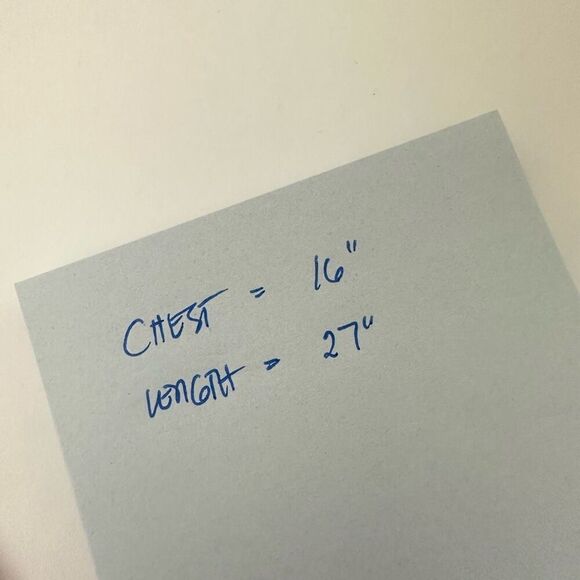 CHEST = 16"
LENGTH = 27"